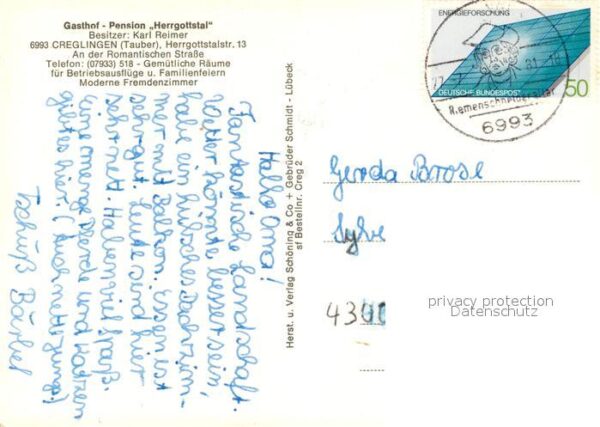 Gasthof - Pension „Herrgottstal"
Besitzer: Karl Reimer
6993 CREGLINGEN (Tauber), Herrgottstalstr. 13
An der Romantischen Straße
Telefon: (07933) 518 - Gemütliche Räume
für Betriebsausflüge u. Familienfeiern
Moderne Fremdenzimmer
Hallo Oma!
Fantastische Landschaft.
Wetter könnte besser sein,
habe ein hübsches Dachzim-
mer mit Balkon. Essen ist
sehr gut. Leute sind hier
sehr nett. Haben viel Spaß.
Eine menge Pferde und Katzen
gibt es hier. (Auch nette Jungs)
Tschüß
Herst. u. Verlag Schöning & Co + Gebrüder Schmidt - Lübeck
sf Bestellnr. Creg 2
ENERGIEFORSCHUNG
DEUTSCHE BUNDESPOST
50
6993
Gerda Brose
privacy protection
Datenschutz